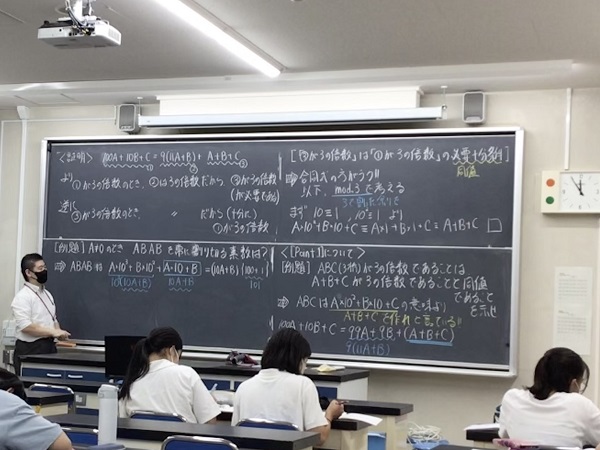 <証明> 100A+10B+C = 9(11A+B)+A+B+C
① ② ③
より ①が3の倍数のとき、②は3の倍数だから ③が3の倍数
(が必要である)
逆に
③が3の倍数のとき、 〃 だから(十分に)
①が3の倍数
[③が3の倍数」は「①が3の倍数」の必要十分条件]
同値
⇒ 合同式のちがう!!
以下、mod.3で考える
3で割った
まず 10≡1, 10²≡1 より
A×10²+B×10+C ≡ A×1+B×1+C = A+B+C □
[例題] A≠0のとき ABABを常に割り切る素数は?
⇒ ABABは A×10³+B×10²+A×10+B = (10A+B)(100+1)
10²(10A+B) 10A+B 101
<Part1について>
[例題] ABC(3桁)が3の倍数であることは
A+B+Cが3の倍数であることと同値
であること
を示せ
⇒ ABCは A×10²+B×10+C の意味より
A+B+Cで作れと言っている!!
100A+10B+C = 99A+9B+(A+B+C)
9(11A+B)